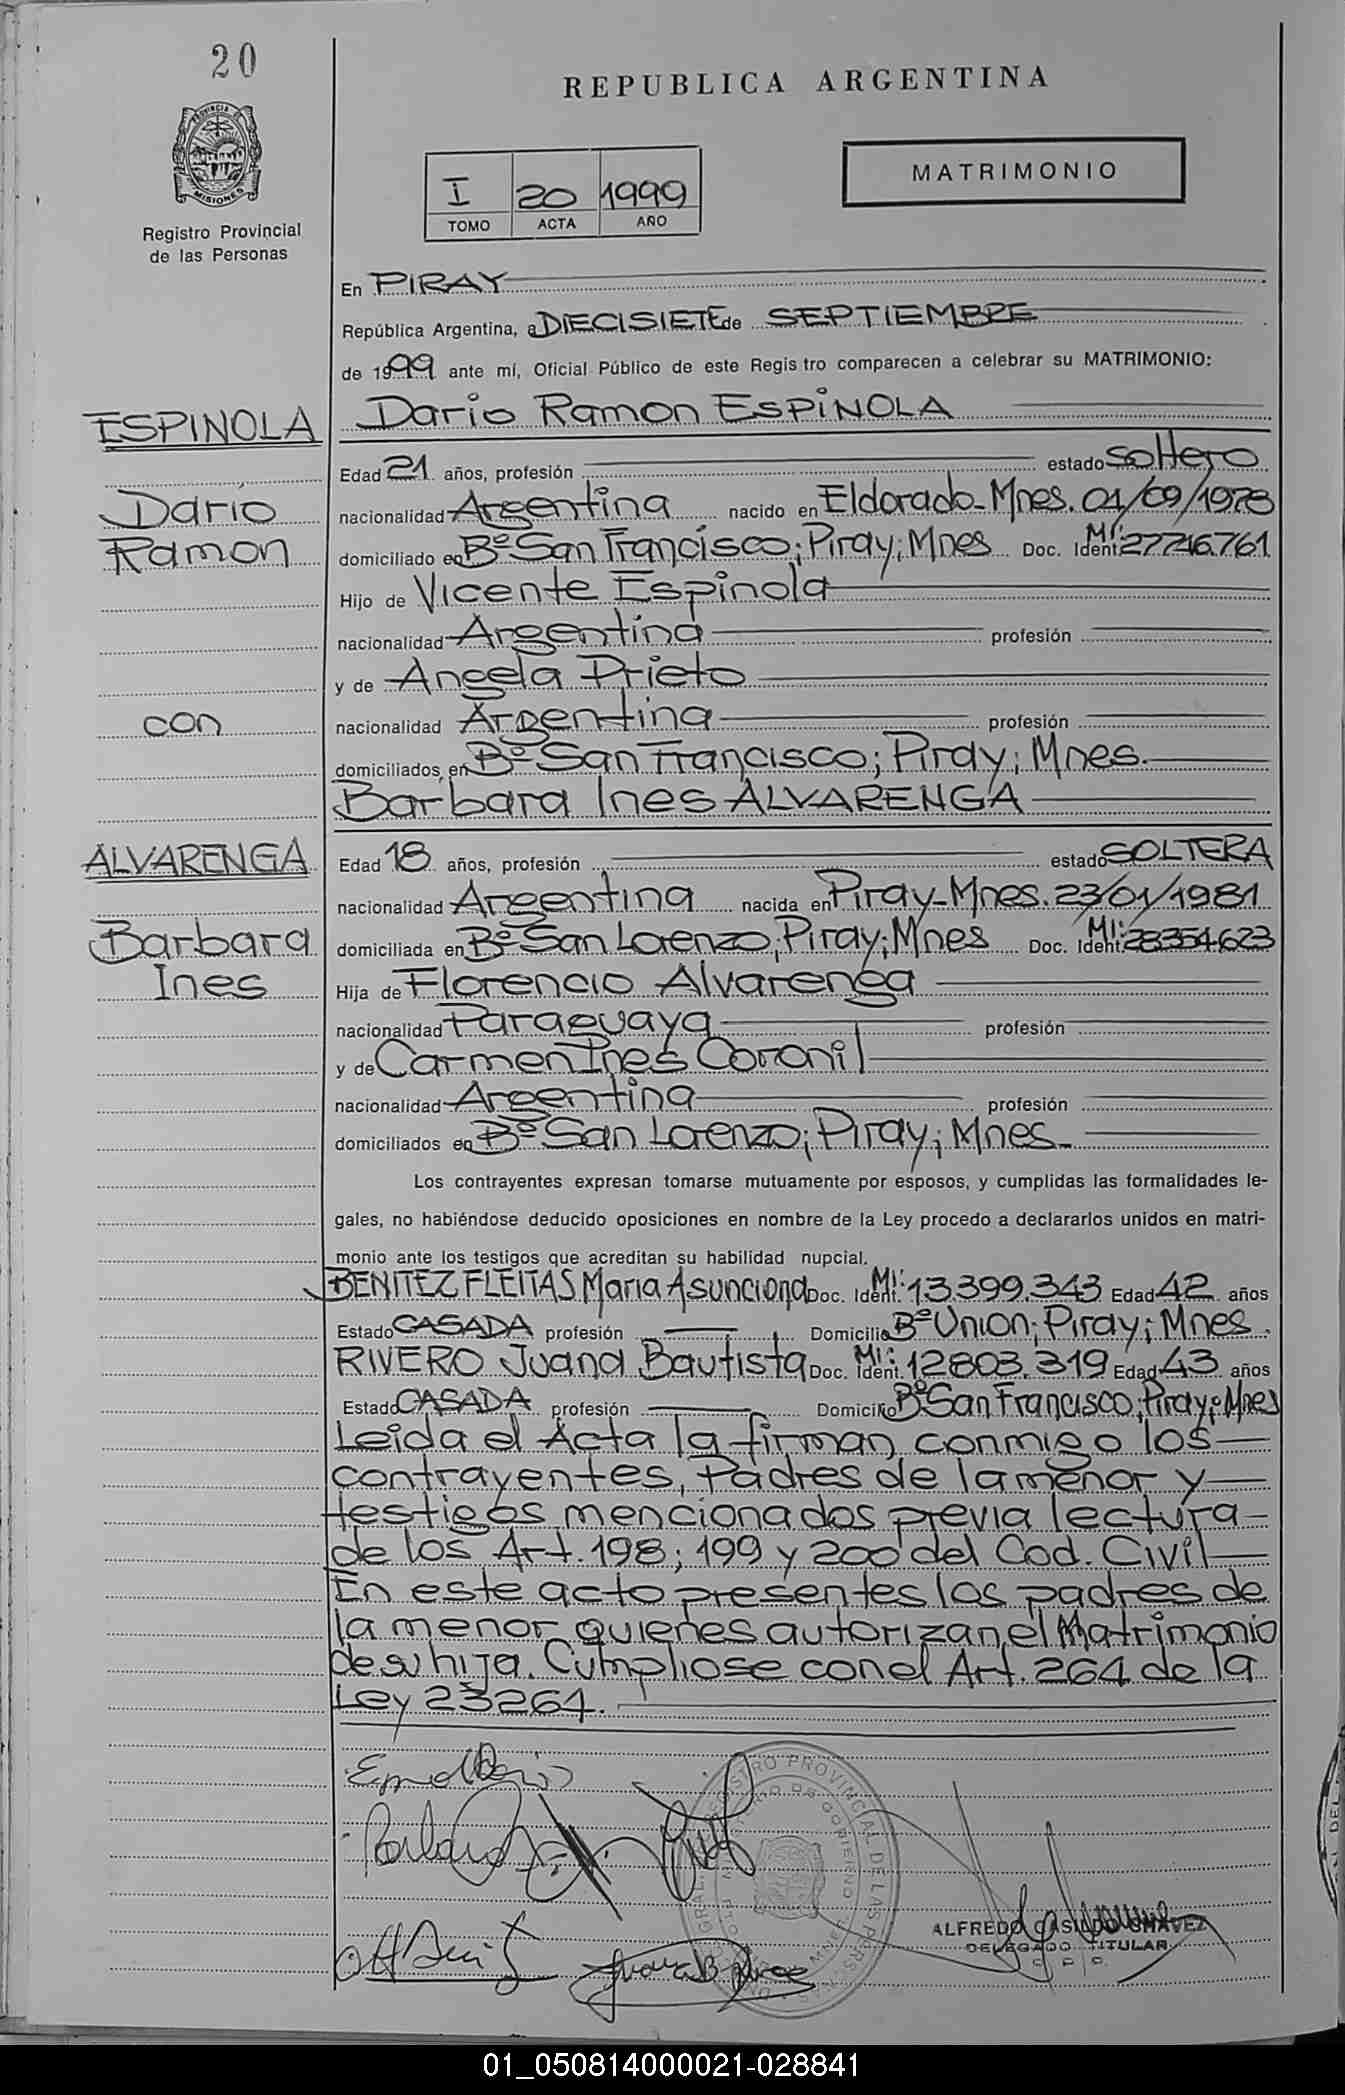 20
REPUBLICA ARGENTINA
PROVINCIA DE
MISIONES
MATRIMONIO
I 20 1999
TOMO ACTA AÑO
Registro Provincial
de las Personas
En PIRAY
República Argentina, a DIECISIETE de SEPTIEMBRE
de 1999 ante mí, Oficial Público de este Regis tro comparecen a celebrar su MATRIMONIO:
ESPINOLA
Dario Ramon ESPINOLA
Edad 21 años, profesión estado soltero
Dario
nacionalidad Argentina nacido en Eldorado-Mnes. 01/09/1978
Ramon
domiciliado en Bº San Francisco; Piray; Mnes Doc. Ident. MI: 27746.761
Hijo de Vicente Espinola
nacionalidad Argentina profesión
y de Angela Prieto
con
nacionalidad Argentina profesión
domiciliados en Bº San Francisco; Piray; Mnes.
Barbara Ines ALVARENGA
ALVARENGA
Edad 18 años, profesión estado SOLTERA
nacionalidad Argentina nacida en Piray-Mnes. 23/01/1981
Barbara
domiciliada en Bº San Lorenzo; Piray; Mnes Doc. Ident. MI: 28354.623
Ines
Hija de Florencio Alvarenga
nacionalidad Paraguaya profesión
y de Carmen Ines Coronil
nacionalidad Argentina profesión
domiciliados en Bº San Lorenzo; Piray; Mnes.
Los contrayentes expresan tomarse mutuamente por esposos, y cumplidas las formalidades le-
gales, no habiéndose deducido oposiciones en nombre de la Ley procedo a declararlos unidos en matri-
monio ante los testigos que acreditan su habilidad nupcial.
BENITEZ FLEITAS Maria Asunciona Doc. Ident. MI: 13.399.343 Edad 42 años
Estado CASADA profesión Domicilio Bº Union; Piray; Mnes.
RIVERO Juana Bautista Doc. Ident. MI: 12803.319 Edad 43 años
Estado CASADA profesión Domicilio Bº San Francisco; Piray; Mnes
Leida el Acta la firman conmigo los
contrayentes, Padres de la menor y
testigos mencionados previa lectura
de los Art. 198; 199 y 200 del Cod. Civil
En este acto presentes los padres de
la menor quienes autorizan el Matrimonio
de su hija. Cumpliose con el Art. 264 de la
Ley 23264.
REGISTRO PROVINCIAL DE LAS PERSONAS
ALFREDO CASILDO CHAVEZ
DELEGADO TITULAR
01_050814000021-028841